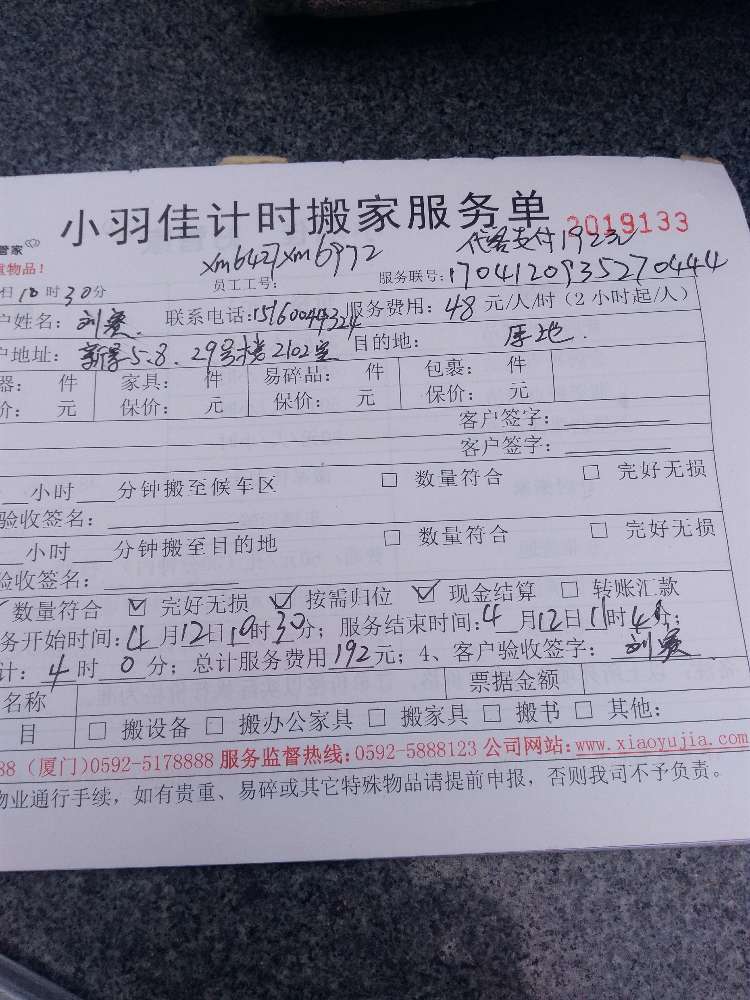 小羽佳计时搬家服务单 2019133
管家
重物品！
代客支付192元
员工工号：xm6427 xm6972 服务联号：1704120935270444
日10时30分
户姓名： 联系电话：15160044324 服务费用：48元/人/时（2小时起/人）
户地址： 5.8.29号楼2102室 目的地：
器： 件 家具： 件 易碎品： 件 包裹： 件
价： 元 保价： 元 保价： 元 保价： 元
客户签字：
客户签字：
小时 分钟搬至候车区 □ 数量符合 □ 完好无损
验收签名：
小时 分钟搬至目的地 □ 数量符合 □ 完好无损
验收签名：
✓ 数量符合 ☑ 完好无损 ☑ 按需归位 ☑ 现金结算 □ 转账汇款
务开始时间：4月12日10时30分；服务结束时间：4月12日11时4分；
计：4时0分；总计服务费用192元；4、客户验收签字：
名称 票据金额
目 □ 搬设备 □ 搬办公家具 □ 搬家具 □ 搬书 □ 其他：
88（厦门）0592-5178888 服务监督热线：0592-5888123 公司网站：www.xiaoyujia.com
物业通行手续，如有贵重、易碎或其它特殊物品请提前申报，否则我司不予负责。